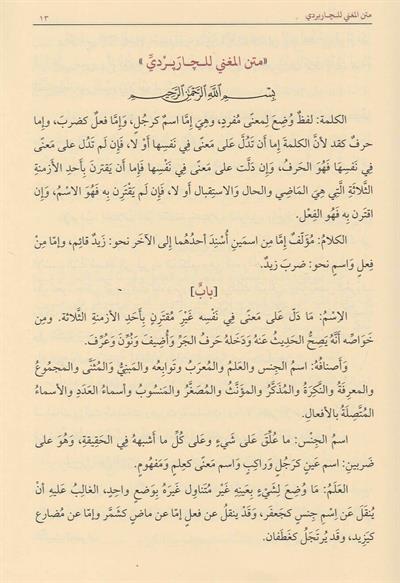 متن المغني للچاربردي ١٣
«متن المغني للـچـارَبِـرْديِّ»
بِسْمِ اللَّهِ الرَّحْمَنِ الرَّحِيمِ
الكلمة: لفظٌ وُضِعَ لِمعنًى مُفردٍ، وهِيَ إمَّا اسمٌ كرجُلٍ، وَإمَّا فعلٌ كضربَ، وإما
حرفٌ كقد لأنَّ الكلمةَ إما أن تَدُلَّ عَلى مَعنًى في نَفسِها أوْ لا، فَإن لَم تَدُل على مَعنًى
في نَفسِهَا فَهُوَ الحَرفُ، وَإن دَلَّت على مَعنًى في نَفْسِها فَإما أن يَقترنَ بأَحدِ الأزمنةِ
الثَّلاثةِ الَّتي هِيَ المَاضِي والحال والاستِقبال أو لا، فَإن لَم يَقْتَرِن بِه فَهُوَ الاسْمُ، وَإن
اقترَن بِه فَهُو الفِعْل.
الكلامُ: مُؤلّفٌ إمَّا مِن اسمَينِ أُسْنِدَ أحدُهُما إلى الآخَر نحو: زَيدٌ قائِم، وإمّا مِنْ
فِعلٍ وَاسمٍ نحو: ضربَ زيدٌ.
[بابٌ]
الاِسْمُ: مَا دَلَّ عَلى مَعنًى في نَفْسِه غَيْرَ مُقْتَرِنٍ بِأَحَدِ الأزمنةِ الثَّلاثة. ومِن
خَوَاصِّه أنَّهُ يَصِحُّ الحَديثُ عَنهُ وَدَخلَهُ حَرفُ الجَرِّ وَأُضيفَ وَنُوِّنَ وَعُرِّفَ.
وَأَصنافُهُ: اسمُ الجِنسِ والعَلَمُ والمُعرَبُ وتَوابِعُه والمَبنِيُّ والمُثَنَّى والمجموعُ
والمعرفَةُ والنَّكِرَةُ والمُذَكَّرُ والمؤنَّثُ والمُصَغَّرُ والمَنسُوبُ وأسماءُ العَدَدِ والأسماءُ
المُتَّصِلَةُ بالأفعالِ.
اسمُ الجِنْسِ: ما عُلِّقَ عَلى شَيءٍ وَعلى كُلِّ ما أشبهَهُ في الحَقِيقةِ، وَهُوَ على
ضَربَينِ: اسم عَينٍ كَرَجُلٍ وَراكِبٍ وَاسم مَعنًى كعِلمٍ وَمَفهُومٍ.
العَلَمُ: مَا وُضِعَ لِشَيْءٍ بِعَينِهِ غَيْرَ مُتَناوِلٍ غَيرَهُ بِوَضعٍ واحدٍ، الغالبُ عَلَيهِ أنْ
يُنقلَ عَن اسْمِ جِنسٍ كجَعفَرٍ، وَقَدْ ينقلُ عن فعلٍ إمّا عن ماضٍ كشَمَّر وإمّا عن مُضارعٍ
كيَزِيد، وقَد يُرتَجَلُ كغَطَفان.